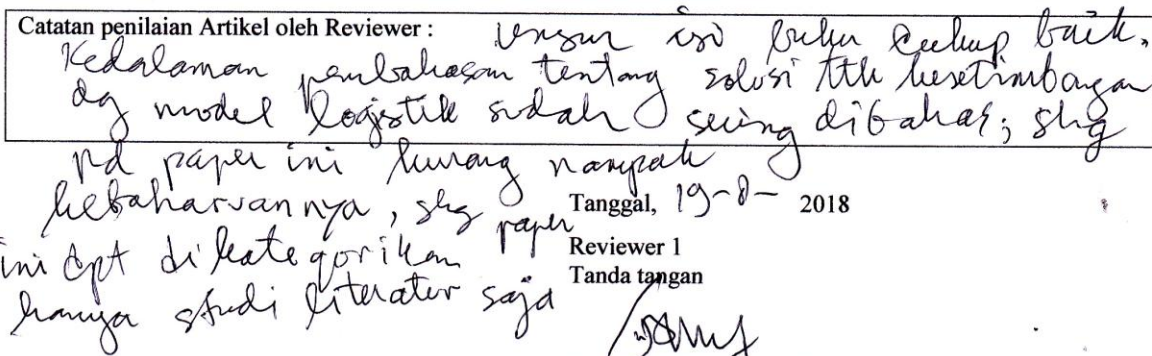 Catatan penilaian Artikel oleh Reviewer : Unsur isi buku cukup baik.
Kedalaman pembahasan tentang solusi ttk kesetimbangan
dg model logistik sudah sering dibahas; shg
pd paper ini kurang nampak
kebaharuannya, shg paper
Tanggal, 19-8- 2018
ini dpt dikategorikan
Reviewer 1
hanya studi literatur saja
Tanda tangan